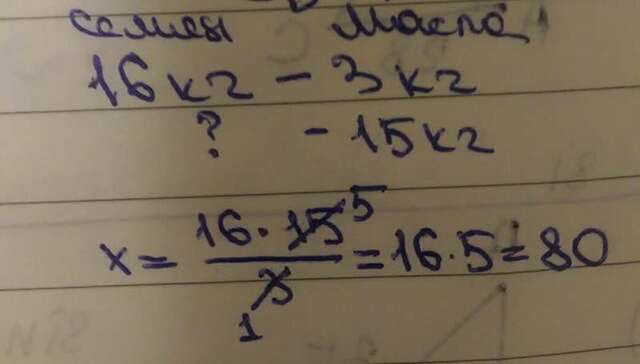 семены масла
16кг - 3кг
? - 15кг
x = 16 · 15 5 / 3 1 = 16 · 5 = 80